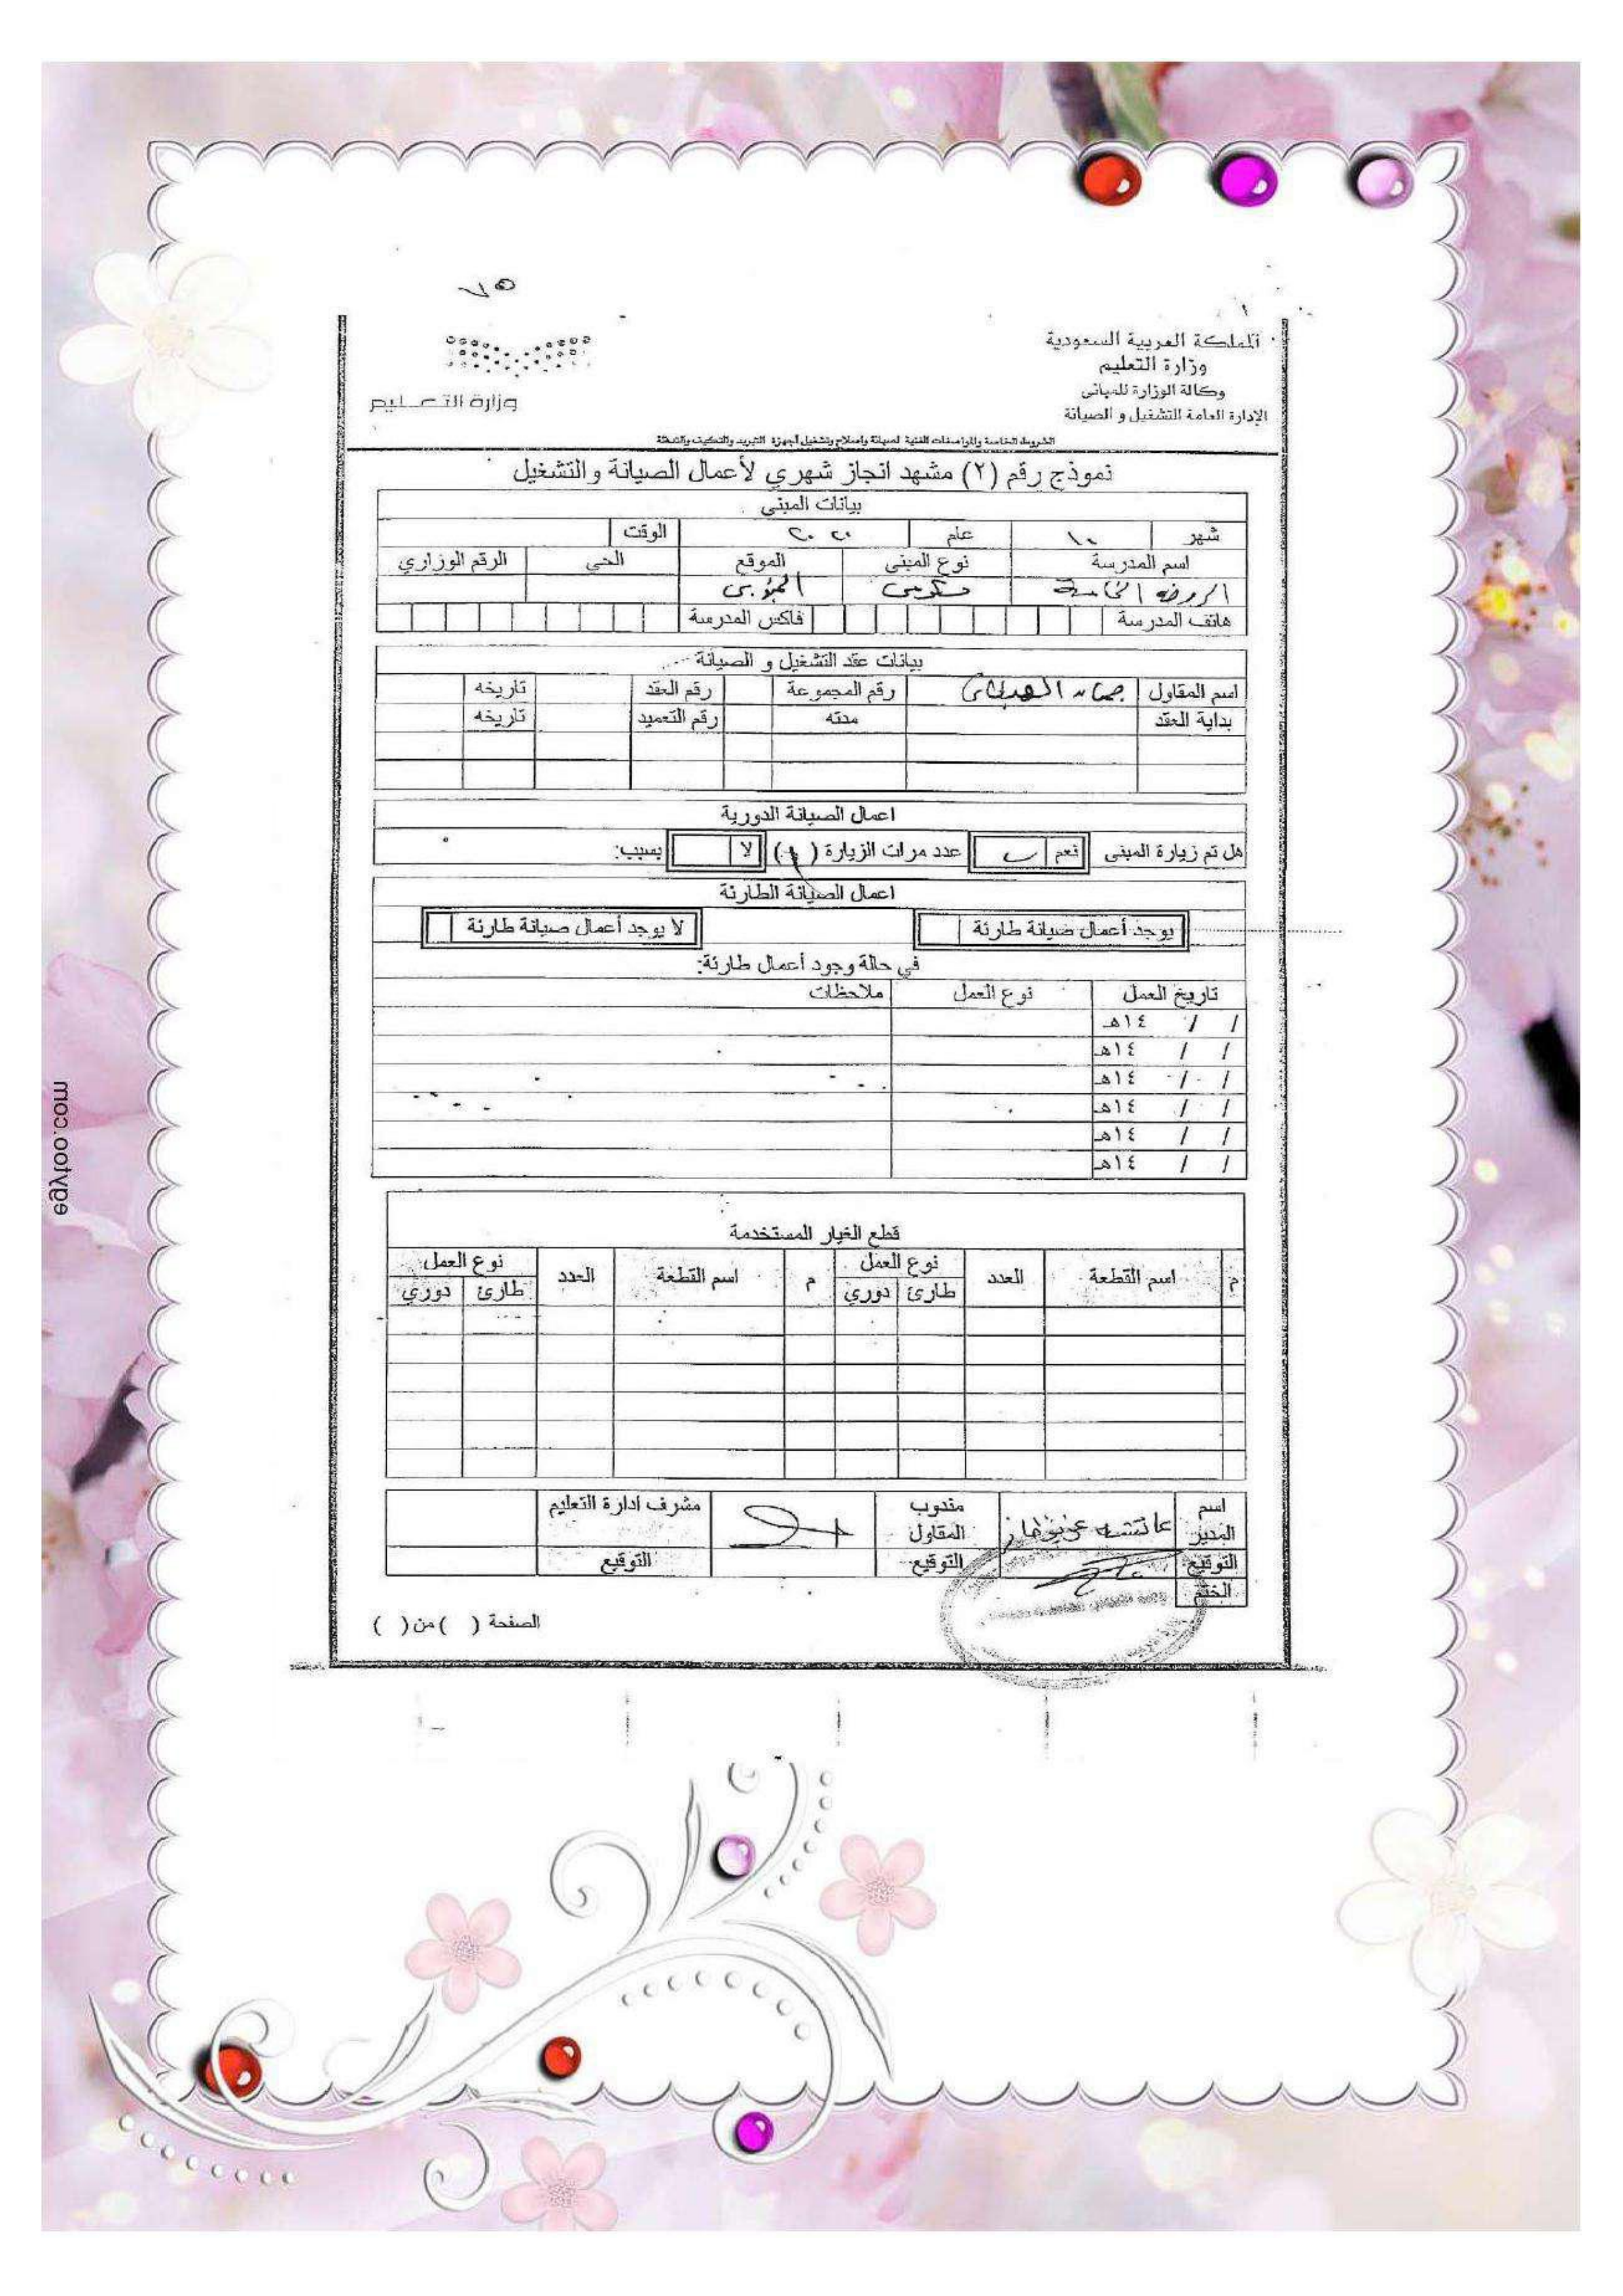 ٧٥
المملكة العربية السعودية
وزارة التعليم
وكالة الوزارة للمباني
الإدارة العامة للتشغيل و الصيانة
وزارة التعليم
الشروط الخاصة والمواصفات الفنية لصيانة وإصلاح وتشغيل أجهزة التبريد والتكييف والتدفئة
نموذج رقم (٢) مشهد انجاز شهري لأعمال الصيانة والتشغيل
بيانات المبنى
شهر ١٠ عام ٢٠٢٠ الوقت
اسم المدرسة نوع المبنى الموقع الحي الرقم الوزاري
الروضة الخامسة حكومي
هاتف المدرسة فاكس المدرسة
بيانات عقد التشغيل و الصيانة
اسم المقاول رقم المجموعة رقم العقد تاريخه
بداية العقد مدته رقم التعميد تاريخه
اعمال الصيانة الدورية
هل تم زيارة المبنى نعم عدد مرات الزيارة ( ) لا بسبب:
اعمال الصيانة الطارئة
يوجد أعمال صيانة طارئة لا يوجد أعمال صيانة طارئة
في حالة وجود أعمال طارئة:
تاريخ العمل نوع العمل ملاحظات
/ / ١٤هـ
/ / ١٤هـ
/ / ١٤هـ
/ / ١٤هـ
/ / ١٤هـ
/ / ١٤هـ
قطع الغيار المستخدمة
م اسم القطعة العدد نوع العمل م اسم القطعة العدد نوع العمل
طارئ دوري طارئ دوري
اسم المدير عائشه مندوب المقاول مشرف ادارة التعليم
التوقيع التوقيع التوقيع
الختم
الصفحة ( ) من ( )
egytoo.com